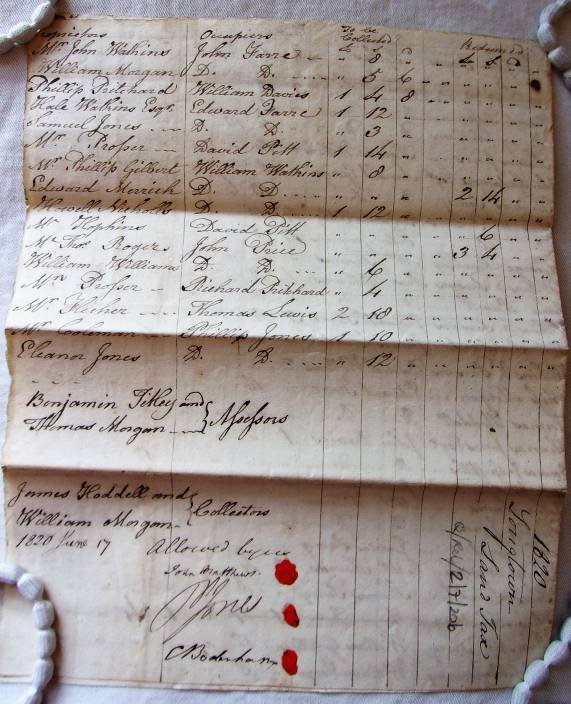 Proprietors Occupiers To be Collected Redeemed
Mr John Watkins John Farre " 8 " 4 " "
William Morgan D. D. " 5 6 " " "
Phillip Pritchard William Davies 1 4 8 " " "
Hale Watkins Esqr. Edward Farre 1 12 " " " "
Samuel Jones D. D. " 3 " " " "
Mr Prosser David Pitt 1 14 " " " "
Mr Phillip Gilbert William Watkins " 8 " " " "
Edward Merrick D. D. " " " 2 14 "
Howell Nicholls D. D. 1 12 " " " "
Mr Hopkins David Pitt " " " " 6 "
Mr Thos. Rogers John Price " " " 3 4 "
William Williams D. D. " 6 " " " "
Mr Prosser Richard Pritchard " 4 " " " "
Mr Thomas Lewis 2 18 " " " "
Mr Coleman Phillip Jones 1 10 " " " "
Eleanor Jones D. D. " 12 " " " "
Benjamin and
Thomas Morgan Assessors
James Hoddell and
William Morgan Collectors
1820 June 17 Allowed by us
John Matthews
Jones
C Bodenham
1820
Longtown
Land Tax